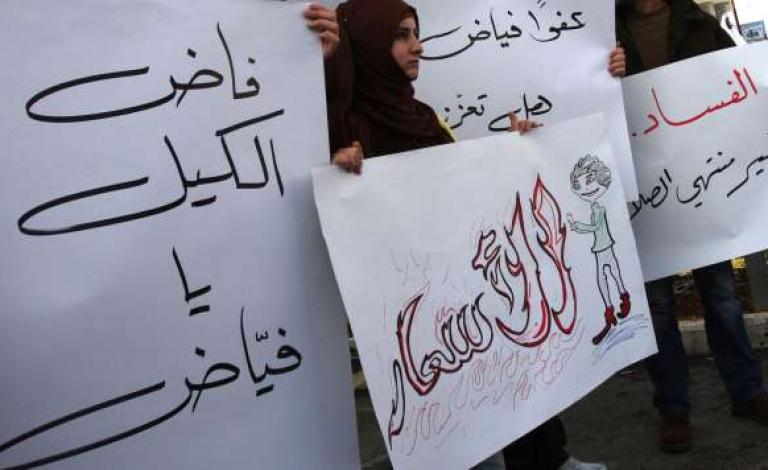 فاض
الكيل
يا
فيّاض
عفوًا فياض
هل تعزز
الأسعار
الفساد.
منتهي الصلا